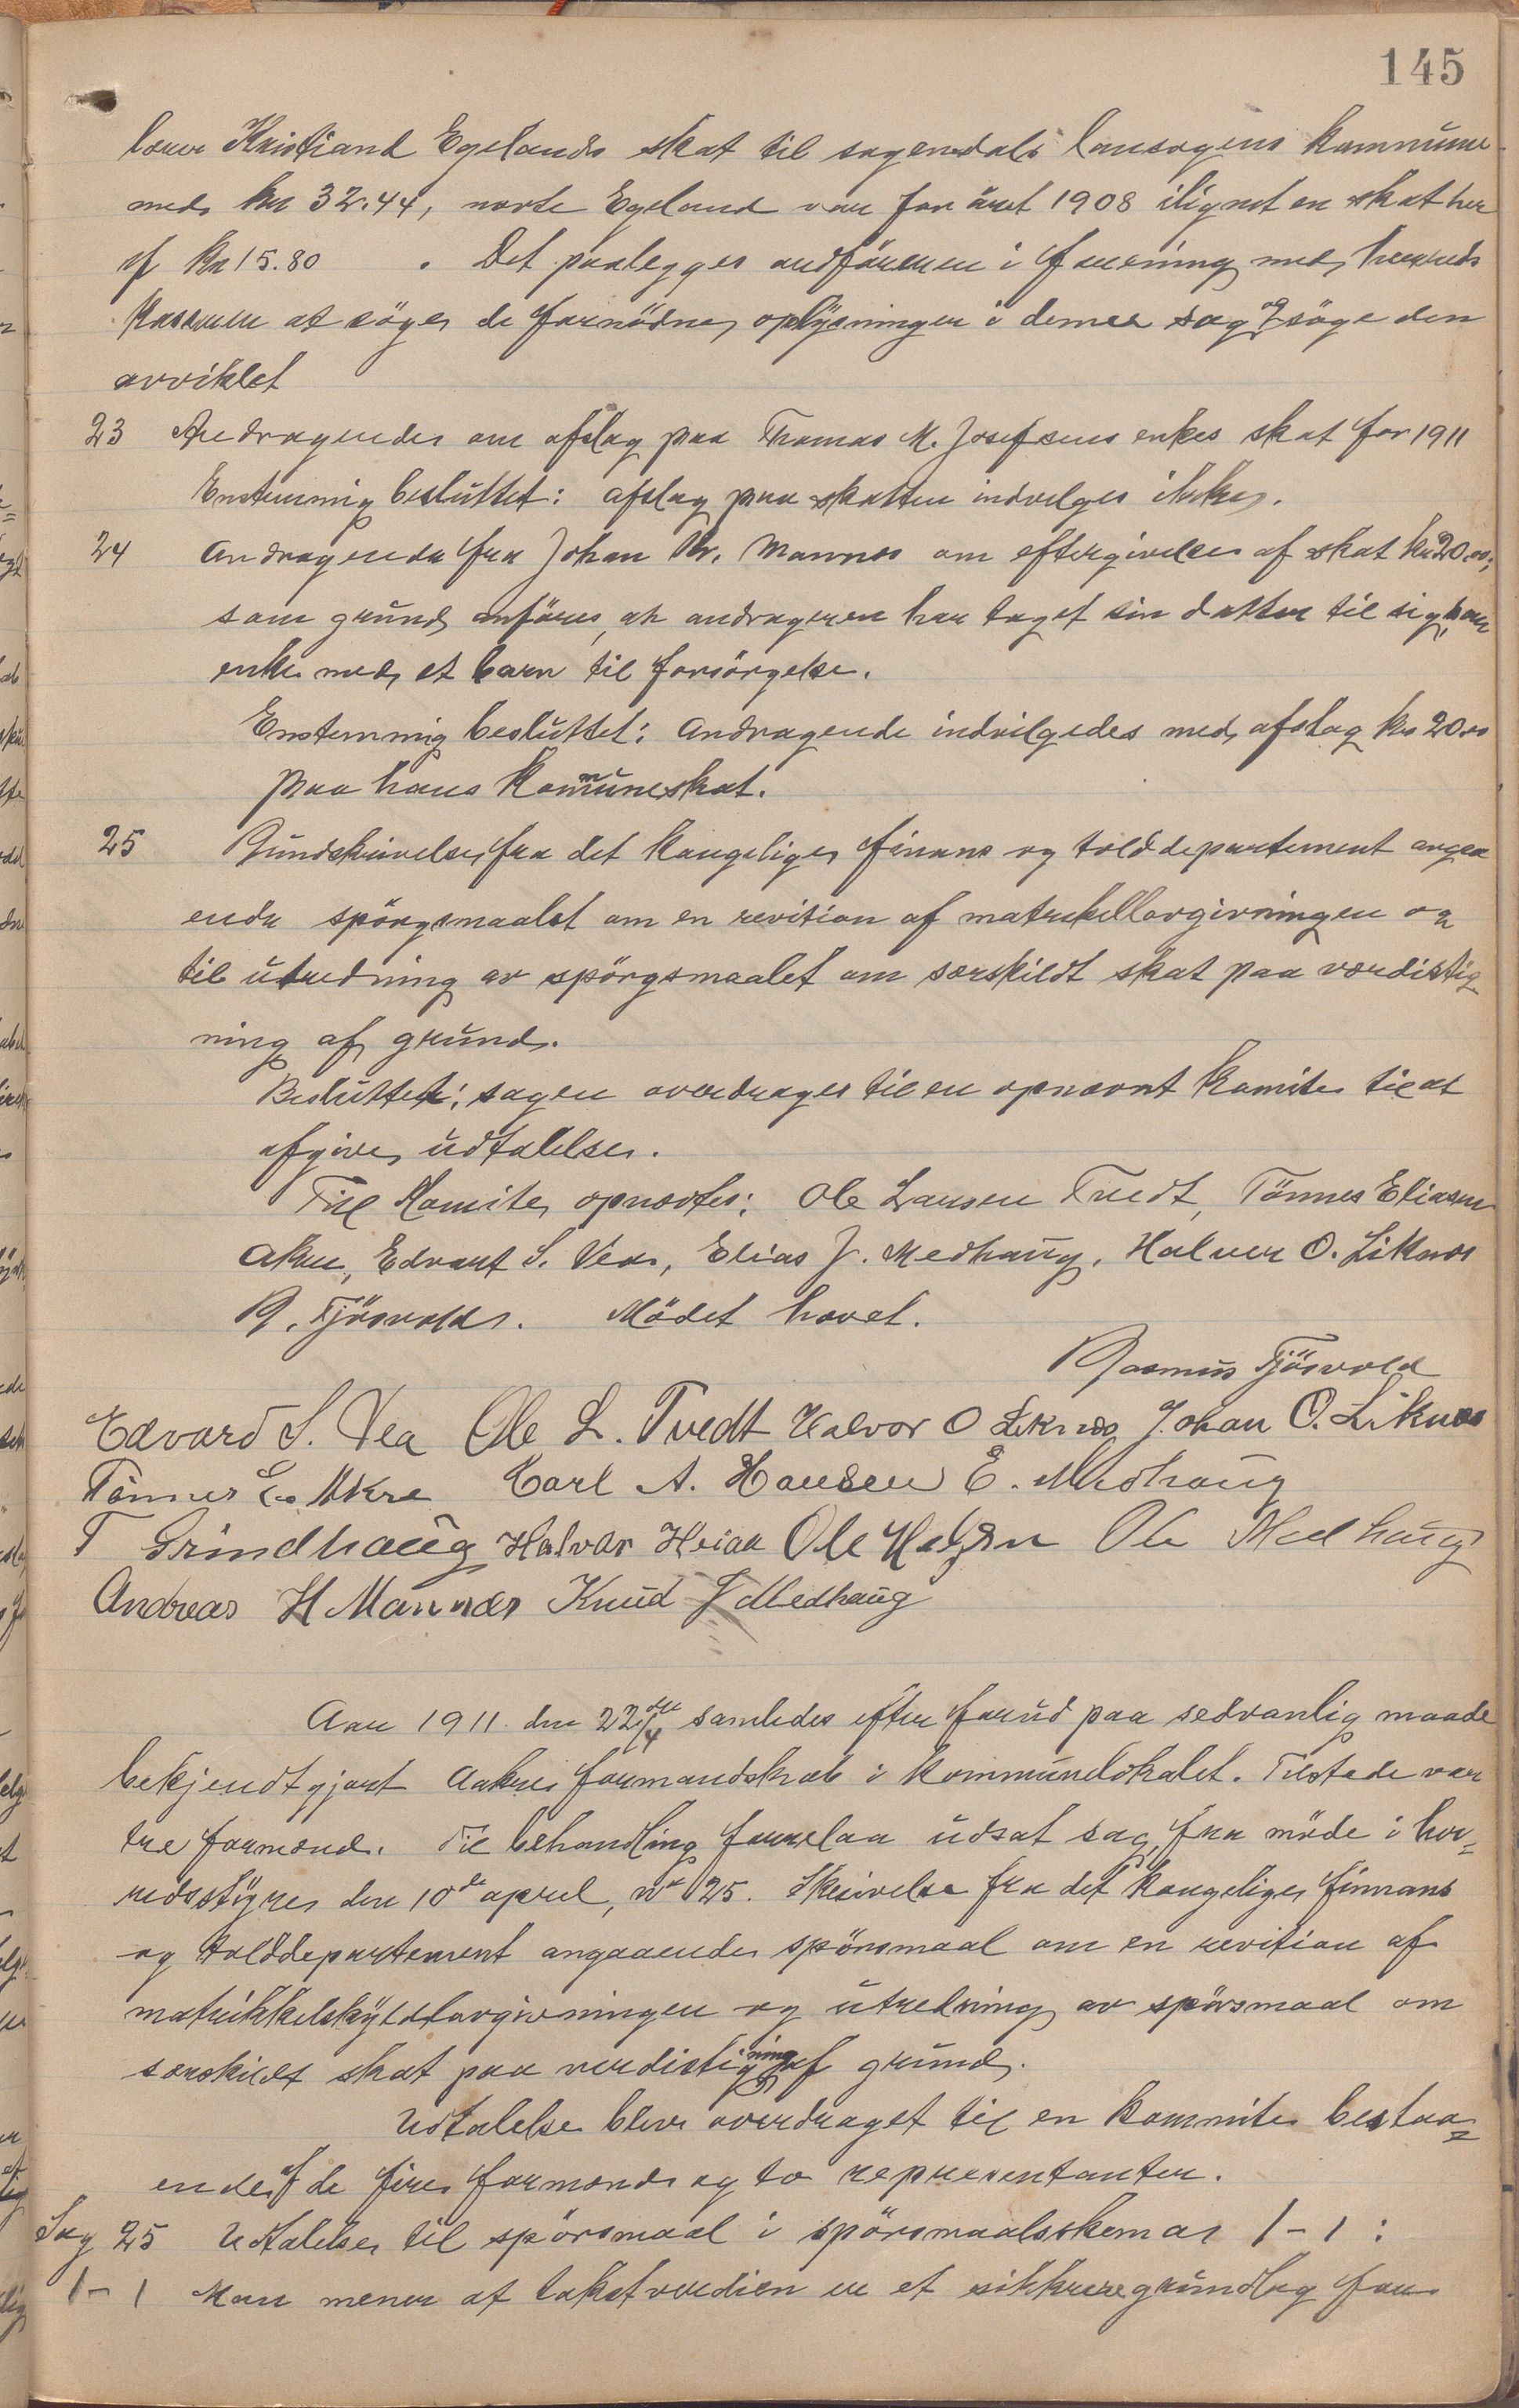 145
lærer Kristiand Egelands skat til sogendals lansogens kommune
med kr 32.44, norte Egeland var for året 1908 ilignet en skat her
af kr 15.80 . Det paalegges ordföreren i forening med herreds
kasseren at söge de fornödne oplysninger i denne sag og söge den
avviklet
23 Andragende om afslag paa Thomas M. Josefsens enkes skat for 1911
Enstemmig besluttet: afslag paa skatten indvilges ikke.
24 Andragende fra Johan Kr. Mannes om eftergivelse af skat kr 20.00;
som grund anföres, at andrageren har taget sin datter til sig, som
enke med et barn til forsörgelse.
Enstemmig besluttet: Andragende indvilgedes med afslag kr 20.00
paa hans Kommuneskat.
25 Rundskrivelse fra det kongelige finans og tolddepartement angaa
ende spörgsmaalet om en revition af matrikellovgivningen og
til utredning av spörgsmaalet om særskildt skat paa værdistig
ning af grund.
Besluttet: sagen overdrages til en opnævnt Komite til at
afgive udtalelse.
Till Komite opnævtes: Ole Larsen Tvedt, Tönnes Eliasen
Akre, Edvart S. Vea, Elias J. Medhaug, Halvor O. Liknes
R. Tjösvold. Mödet hævet.
Rasmus Tjösvold
Edvard S. Vea Ole L. Tvedt Halvor O Liknes Johan O. Liknes
Tönnes E. Akre Karl A. Hansen E. Medhaug
T Grindhaug Halvor Heiaa Ole Ole Medhaug
Andreas H Mannes Knud J Medhaug
Aar 1911 den 22de/4 samledes efter forud paa sedvanlig maade
bekjendtgjort Aakre formandskab i kommunelokalet. Tilstede var
tre formænd. Til behandling forelaa udsat sag fra möde i her-
redsstyre den 10de april, No 25. Skrivelse fra det kongelige finnans
og tolddepartement angaaende spörsmaal om en revition af
matrikkelskyldlovgivningen og utredning av spörsmaal om
særskildt skat paa verdistigning af grund.
Udtalelse blev overdraget til en kommite bestaa-
ende af de fire formænd og to representanter.
Sag 25 Udtalelse til spörsmaal i spörsmaalsskemaer 1-1:
1-1 Man mener at takstverdien er et sikkrere grundlag for